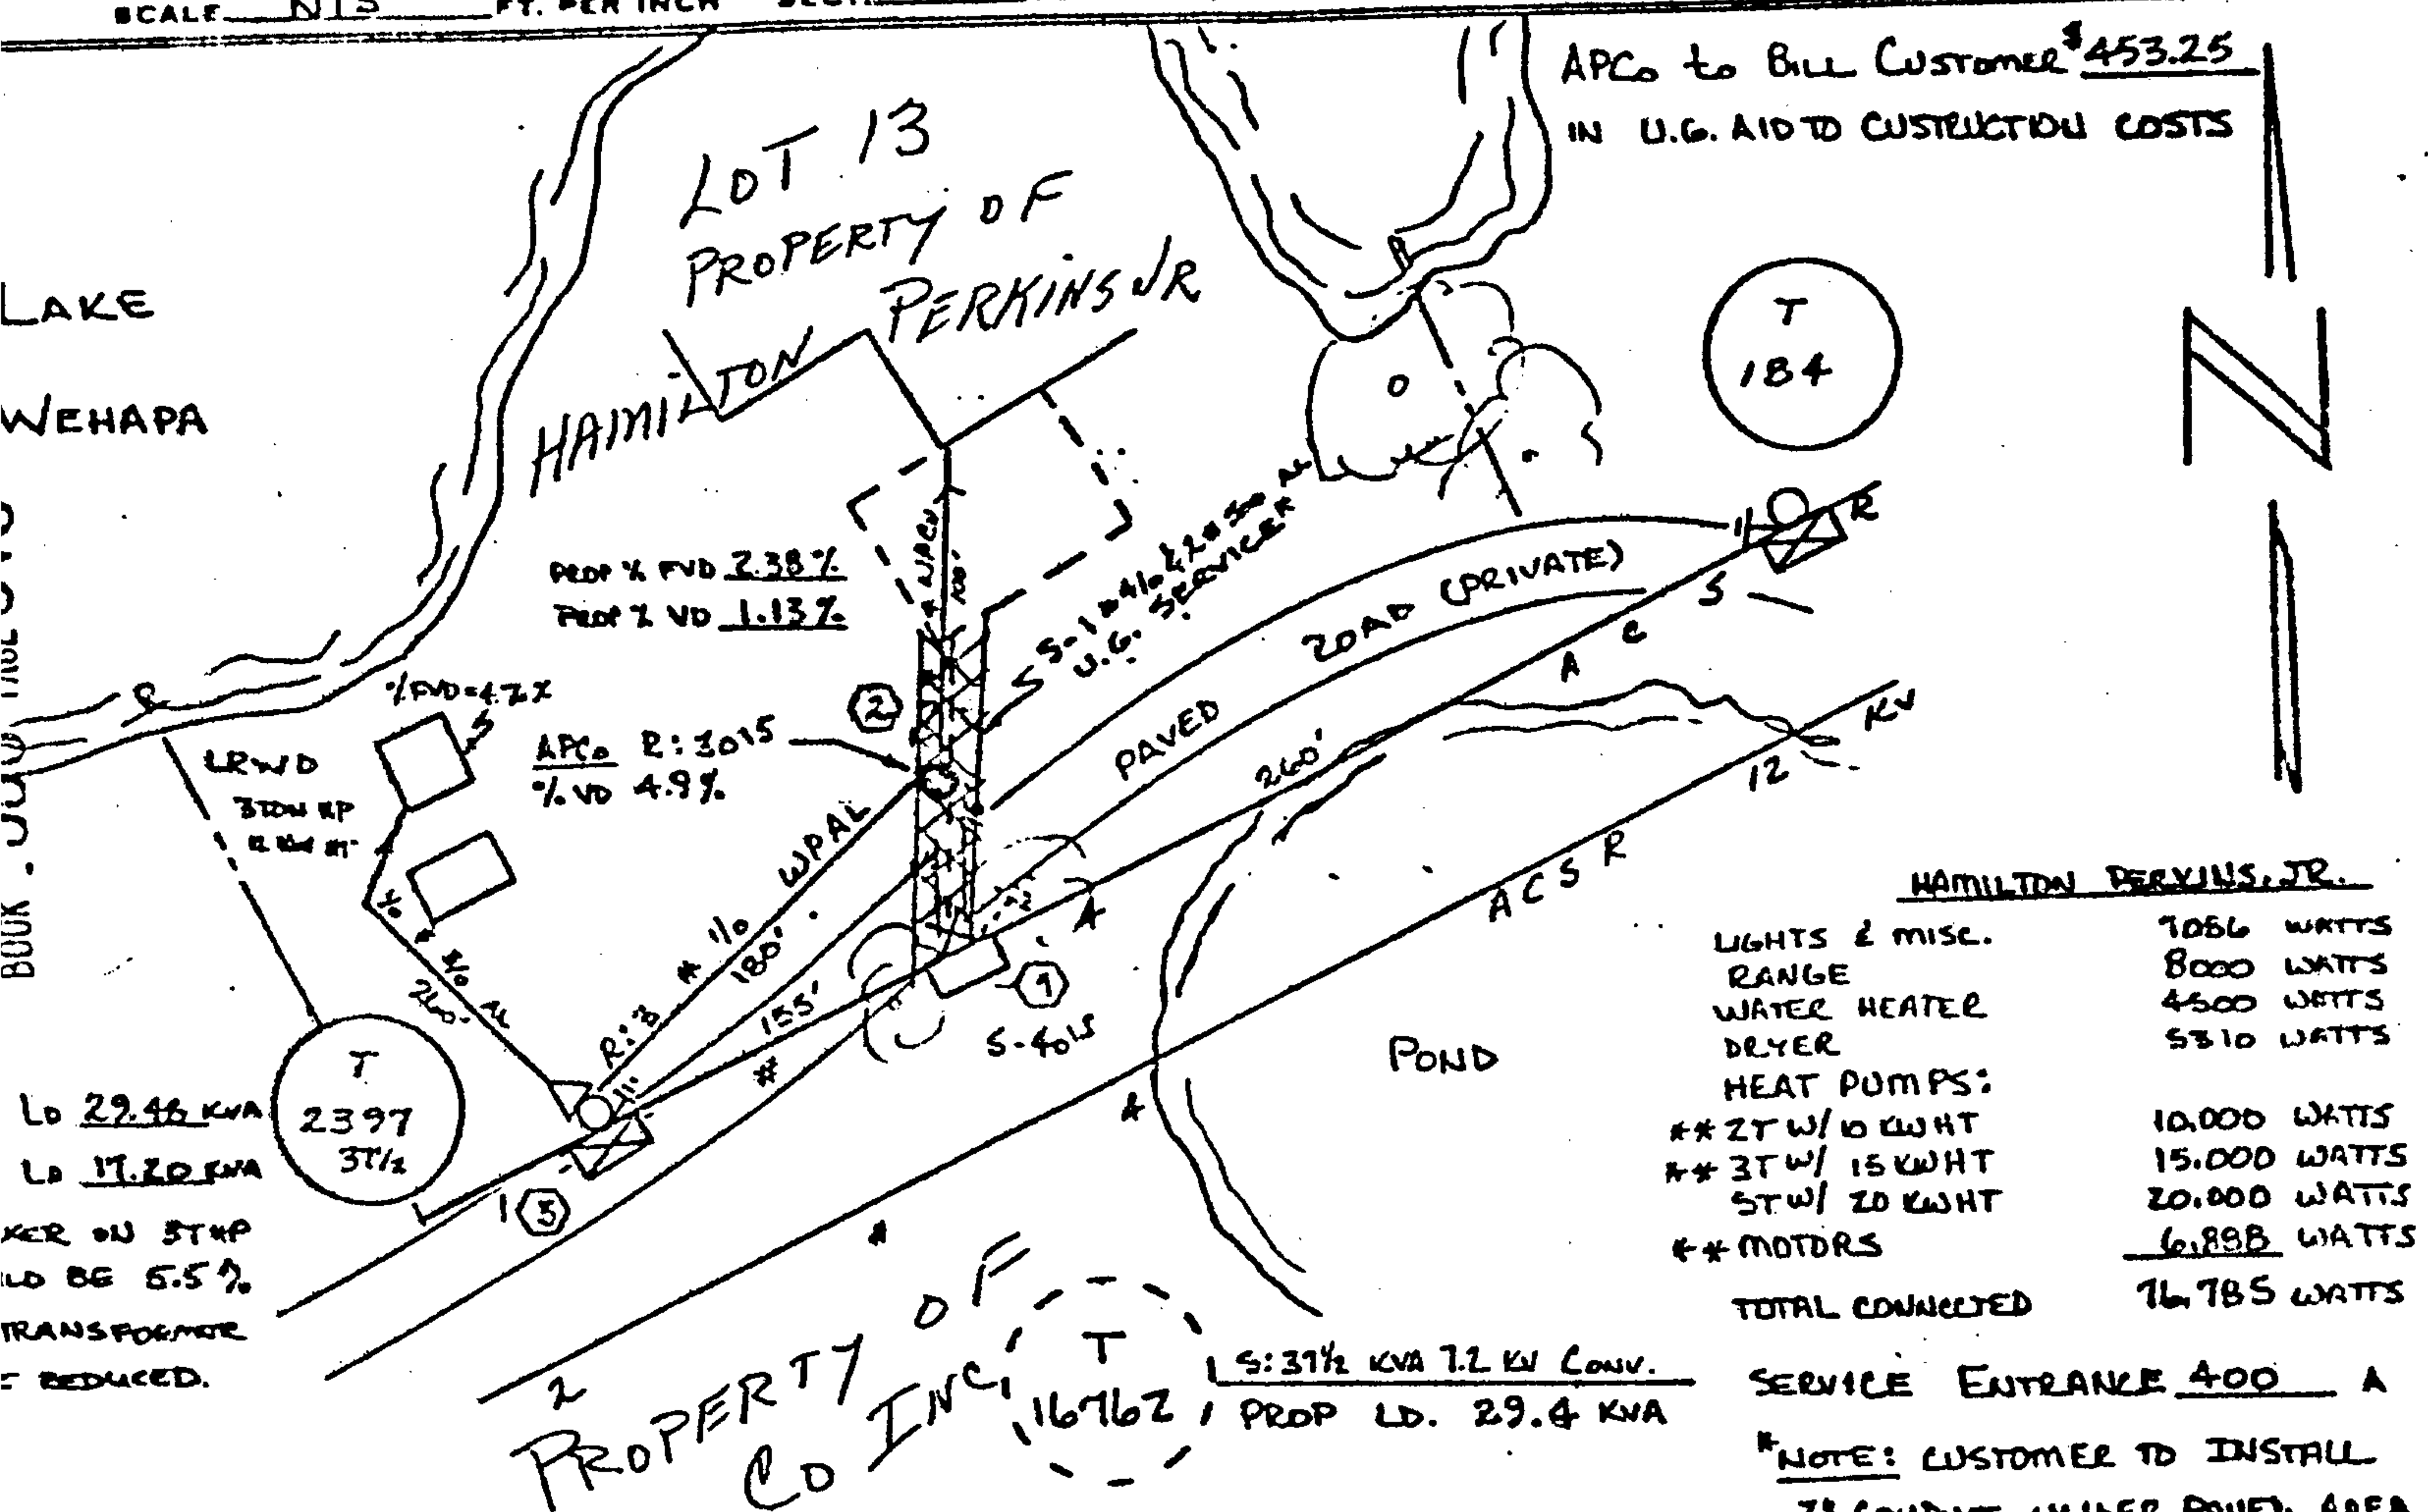 SCALE NTS FT. PER INCH
APCo to BILL CUSTOMER $453.25
IN U.G. AID TO CUSTRUCTION COSTS
LOT 13
PROPERTY OF
HAMILTON PERKINS JR
LAKE
WEHAPA
T
184
PROP % FVD 2.38%
PROP % VD 1.13%
U.G. SERVICE
PAVED ROAD (PRIVATE)
R
S
C
A
A
260'
%FVD=4.7%
LRWD
3 TON HP
2
APCo R: 3015
% VD 4.9%
12 KV
A C S R
WPAL
# 1/0
180'
R: 3
155'
#
1
S-4015
POND
BOOK
T
2397
37½
LD 29.46 KVA
LD 17.20 KVA
3
ON 5T HP
BE 5.5%
TRANSFORMER
REDUCED.
2
PROPERTY OF
CO INC
T
16762
S: 37½ KVA 7.2 KV CONV.
PROP LD. 29.4 KVA
HAMILTON PERKINS, JR.
LIGHTS & MISC. 7056 WATTS
RANGE 8000 WATTS
WATER HEATER 4500 WATTS
DRYER 5310 WATTS
HEAT PUMPS:
** 2T W/ 10 KWHT 10,000 WATTS
** 3T W/ 15 KWHT 15,000 WATTS
5T W/ 20 KWHT 20,000 WATTS
** MOTORS 6,898 WATTS
TOTAL CONNECTED 76,785 WATTS
SERVICE ENTRANCE 400 A
*NOTE: CUSTOMER TO INSTALL
CONDUIT UNDER PAVED AREA